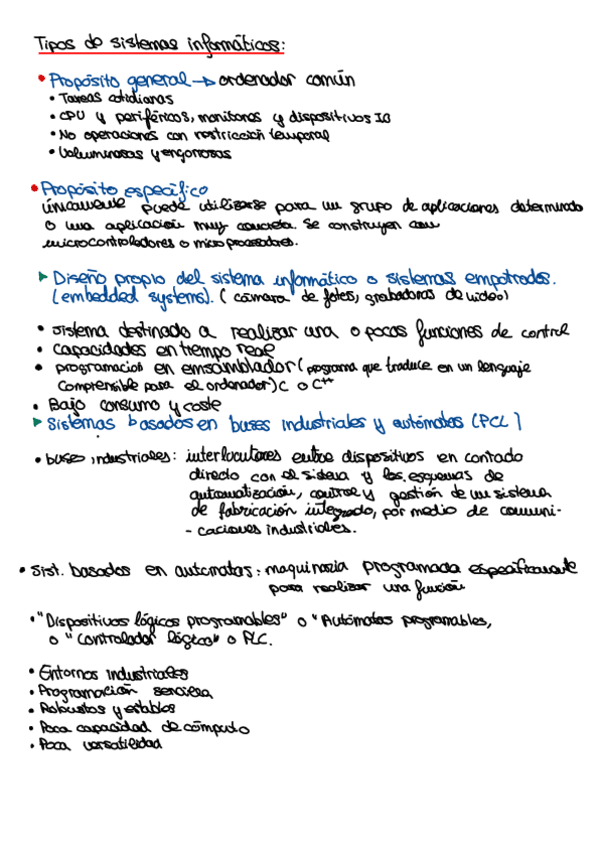 Tipos de sistemas informáticos:
• Propósito general → ordenador común
• Tareas cotidianas
• CPU y periféricos, monitores y dispositivos IO
• No operaciones con restricción temporal
• Voluminosas y engorrosas
• Propósito específico
únicamente puede utilizarse para un grupo de aplicaciones determinado
o una aplicación muy concreta. Se construyen con
microcontroladores o microprocesadores.
▶ Diseño propio del sistema informático o sistemas empotrados.
(embedded systems). (cámara de fotos, grabadoras de video)
• sistema destinado a realizar una o pocas funciones de control
• Capacidades en tiempo real
• programacios en emsamblador (programa que traduce en un lenguaje
comprensible para el ordenador) C o C++
• Bajo consumo y coste
▶ Sistemas basados en buses industriales y autómatas (PCL)
• buses industriales: interlocutores entre dispositivos en contado
directo con el sistema y los esquemas de
automatización, control y gestión de un sistema
de fabricación integrado, por medio de comuni-
- caciones industriales.
• Sist. basados en automatas: maquinaria programada específicamente
para realizar una función
• "Dispositivos lógicos programables" o "Autómatas programables,
o "Controlador lógico" o PLC.
• Entornos industriales
• Programación sencilla
• Robustos y estables
• Poca capacidad de cómputo
• Poca versatilidad